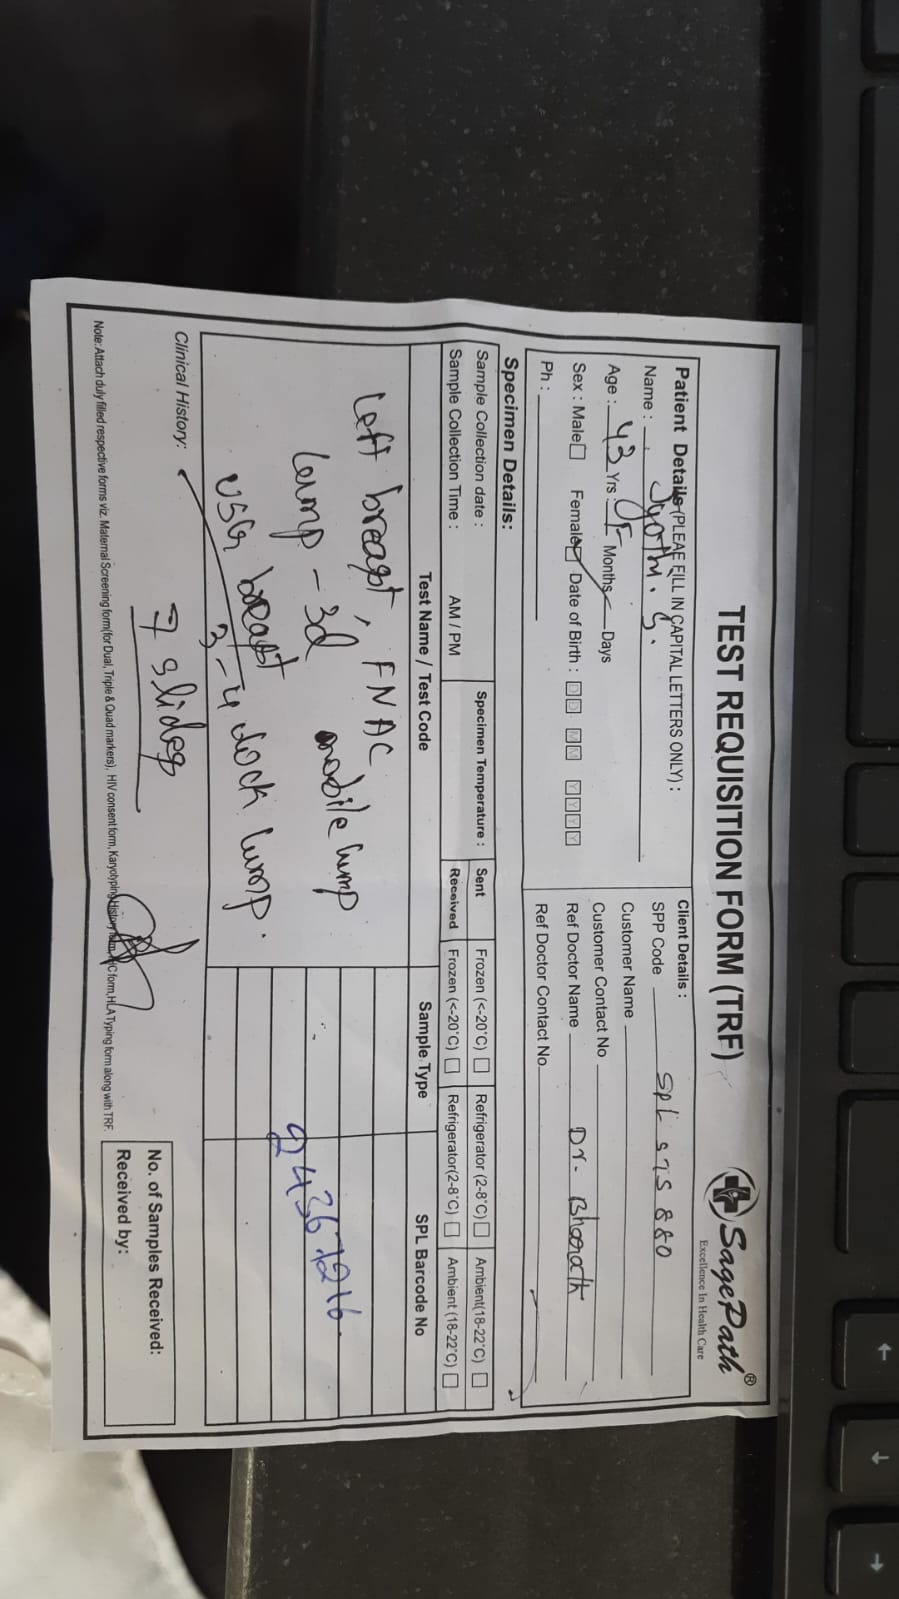 TEST REQUISITION FORM (TRF)
SagePath®
Excellence In Health Care
Patient Details (PLEAE FILL IN CAPITAL LETTERS ONLY) :
Name : Jyothi. S.
Age : 43 Yrs : F Months Days
Sex : Male Female Date of Birth : D D M M Y Y Y Y
Ph :
Client Details :
SPP Code SPL STS 880
Customer Name
Customer Contact No
Ref Doctor Name Dr. Bharath
Ref Doctor Contact No
Specimen Details:
Sample Collection date : Specimen Temperature : Sent Frozen (<-20°C) Refrigerator (2-8°C) Ambient(18-22°C)
Sample Collection Time : AM / PM Received Frozen (<-20°C) Refrigerator(2-8°C) Ambient (18-22°C)
Test Name / Test Code Sample Type SPL Barcode No
Left breast, FNAC
lump - 3d mobile lump
USG breast
3-4 clock lump.
24367216
Clinical History:
7 slides
No. of Samples Received:
Received by:
Note: Attach duly filled respective forms viz. Maternal Screening form(for Dual, Triple & Quad markers), HIV consent form, Karyotyping History form, form, HLA Typing form along with TRF.